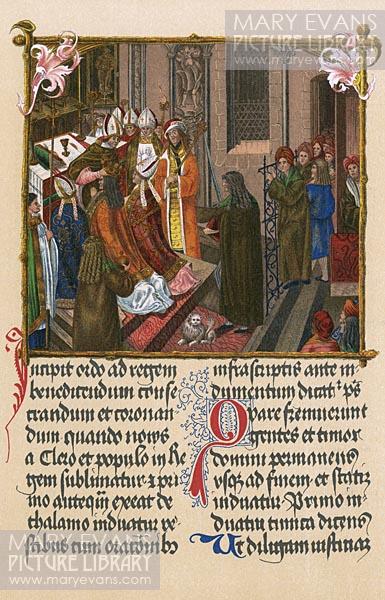 MARY EVANS
PICTURE LIBRARY
www.maryevans.com
Incipit ordo ad regem
benedicendum conse
crandum et coronan
dum quando novus
a Clero et populo in Re
gem sublimatur
mo antequam exeat de
thalamo induatur ve
stibus cum orationibus
infrascriptis ante in
dumentum dicat
gentes et timor
domini permanens
usque ad finem et statim
induatur Primo in
duatur tunica dicens
Ut diligam iustitiam
MARY EVANS
PICTURE LIBRARY
www.maryevans.com